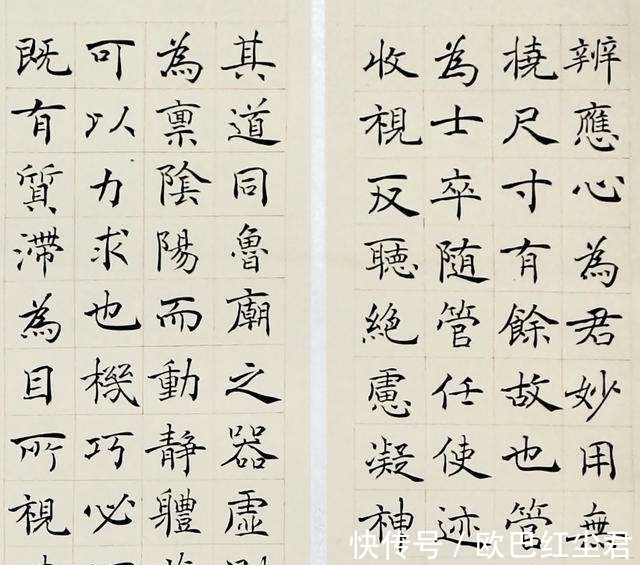 辨應心為君妙用無
撓尺寸有餘故也管
為士卒隨管任使迹
收視反聽絕慮凝神
其道同魯廟之器虛
為禀陰陽而動靜體
可以力求也機巧必
既有質滯為目所視
快传号 / 欧巴红尘君